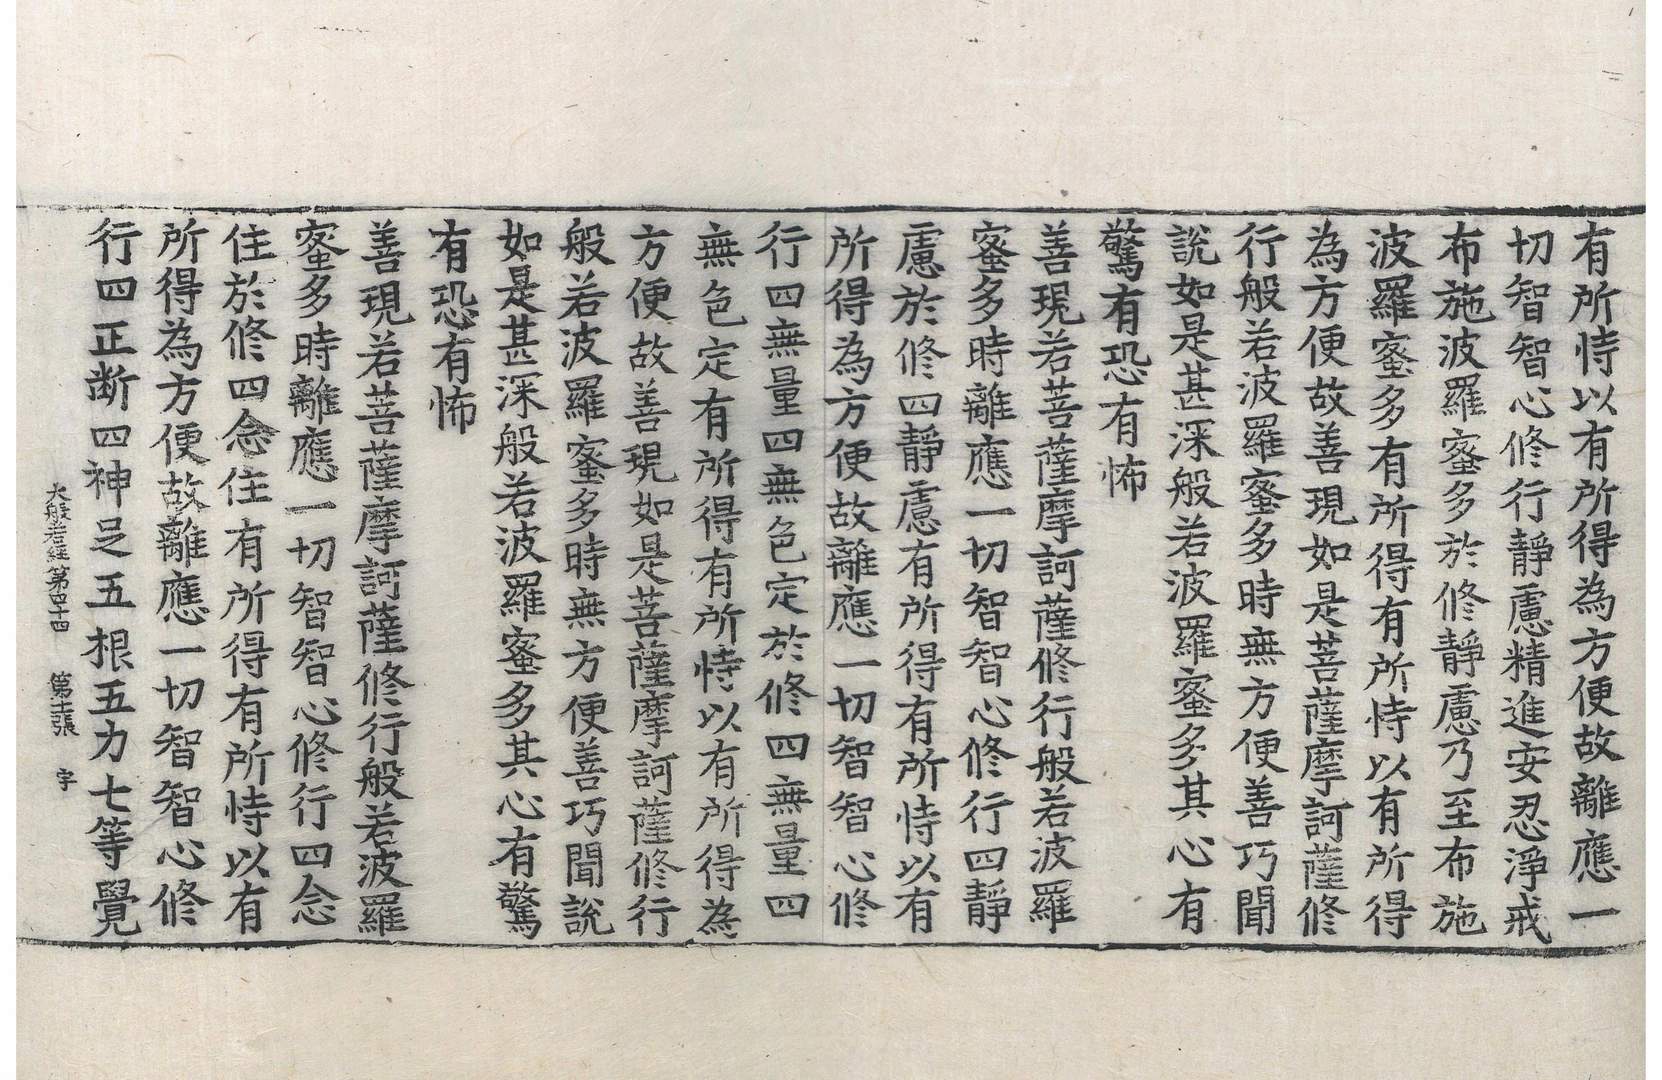 有所恃以有所得為方便故離應一
切智智心修行靜慮精進安忍淨戒
布施波羅蜜多於修靜慮乃至布施
波羅蜜多有所得有所恃以有所得
為方便故善現如是菩薩摩訶薩修
行般若波羅蜜多時無方便善巧聞
說如是甚深般若波羅蜜多其心有
驚有恐有怖
善現若菩薩摩訶薩修行般若波羅
蜜多時離應一切智智心修行四靜
慮於修四靜慮有所得有所恃以有
所得為方便故離應一切智智心修
行四無量四無色定於修四無量四
無色定有所得有所恃以有所得為
方便故善現如是菩薩摩訶薩修行
般若波羅蜜多時無方便善巧聞說
如是甚深般若波羅蜜多其心有驚
有恐有怖
善現若菩薩摩訶薩修行般若波羅
蜜多時離應一切智智心修行四念
住於修四念住有所得有所恃以有
所得為方便故離應一切智智心修
行四正断四神足五根五力七等覺
大般若經第四十四 第十二張 字